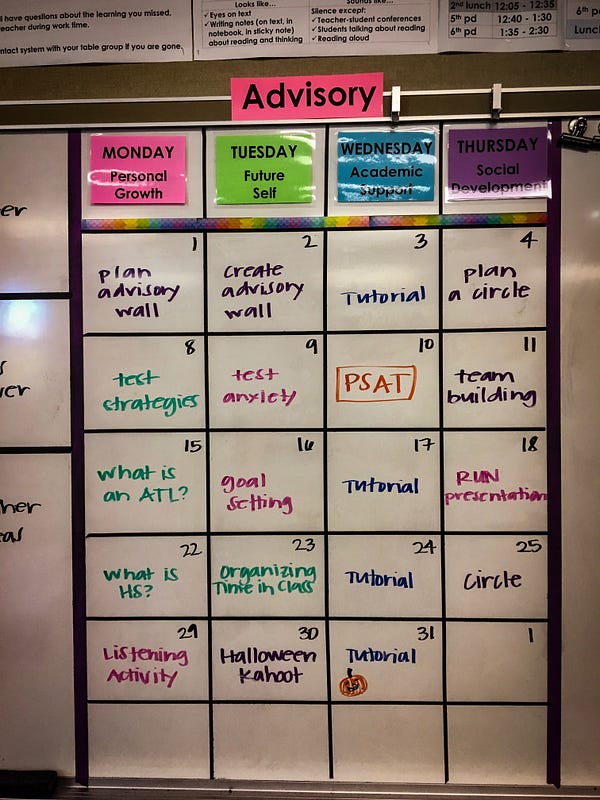 l have questions about the learning you missed,
teacher during work time.
ntact system with your table group if you are gone.
Looks like...
✓Eyes on text
✓Writing notes (on text, in
notebook, in sticky note)
about reading and thinking
Sounds like...
Silence except:
✓Teacher-student conferences
✓Students talking about reading
✓Reading aloud
2nd lunch 12:05 - 12:35
5th pd 12:40 - 1:30
6th pd 1:35 - 2:30
6th p
Lunch
Advisory
MONDAY
Personal
Growth
TUESDAY
Future
Self
WEDNESDAY
Academic
Support
THURSDAY
Social
Development
er
1
plan
advisory
wall
2
create
advisory
wall
3
Tutorial
4
plan
a circle
8
test
strategies
9
test
anxiety
10
PSAT
11
team
building
15
what is
an ATL?
16
goal
setting
17
Tutorial
18
RUN
presentation
22
What is
HS?
23
Organizing
Time in Class
24
Tutorial
25
Circle
29
Listening
Activity
30
Halloween
Kahoot
31
Tutorial
1